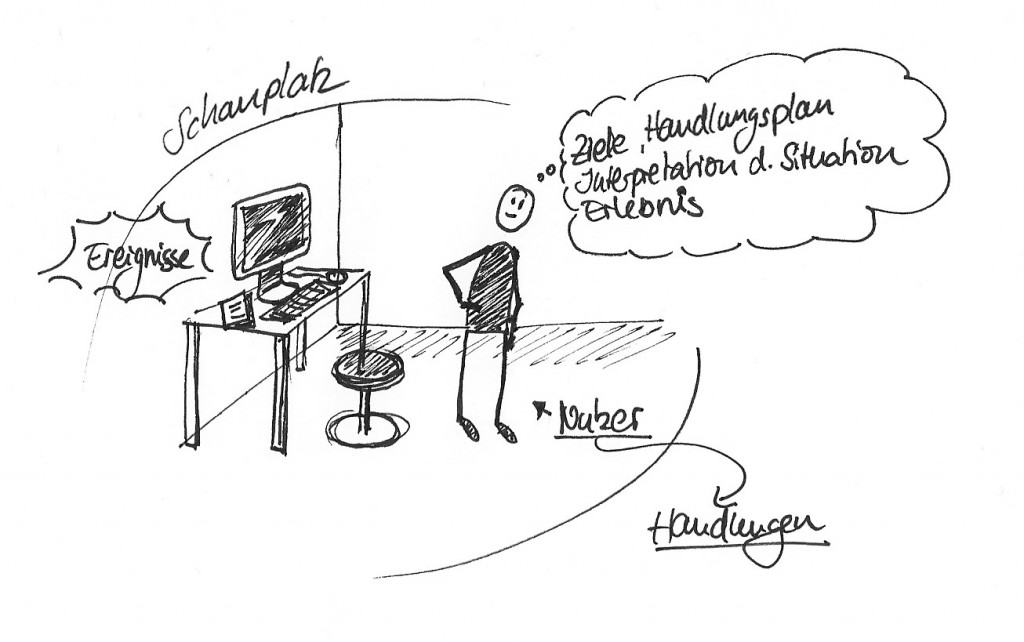 Schauplatz
Ziele, Handlungsplan
Interpretation d. Situation
Erlebnis
Ereignisse
Nutzer
Handlungen